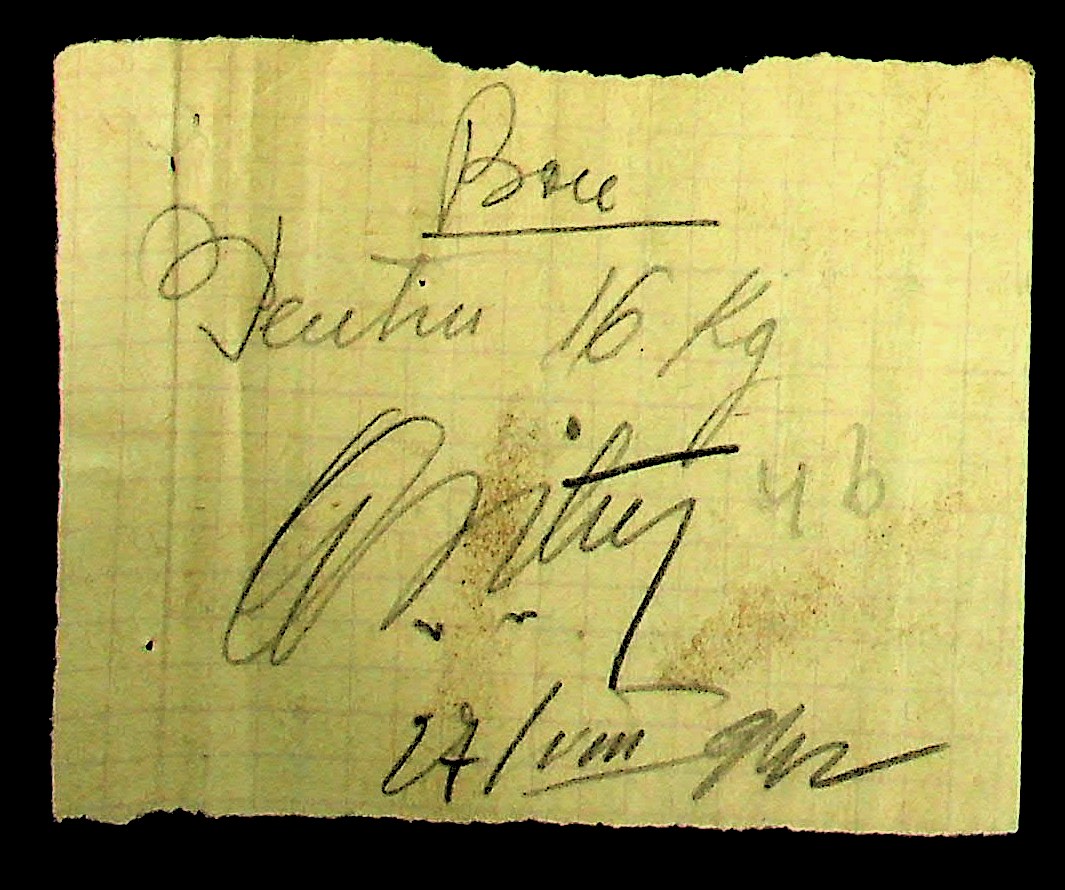 Bon
Pentru 16 Kg
46
27/VIII 942